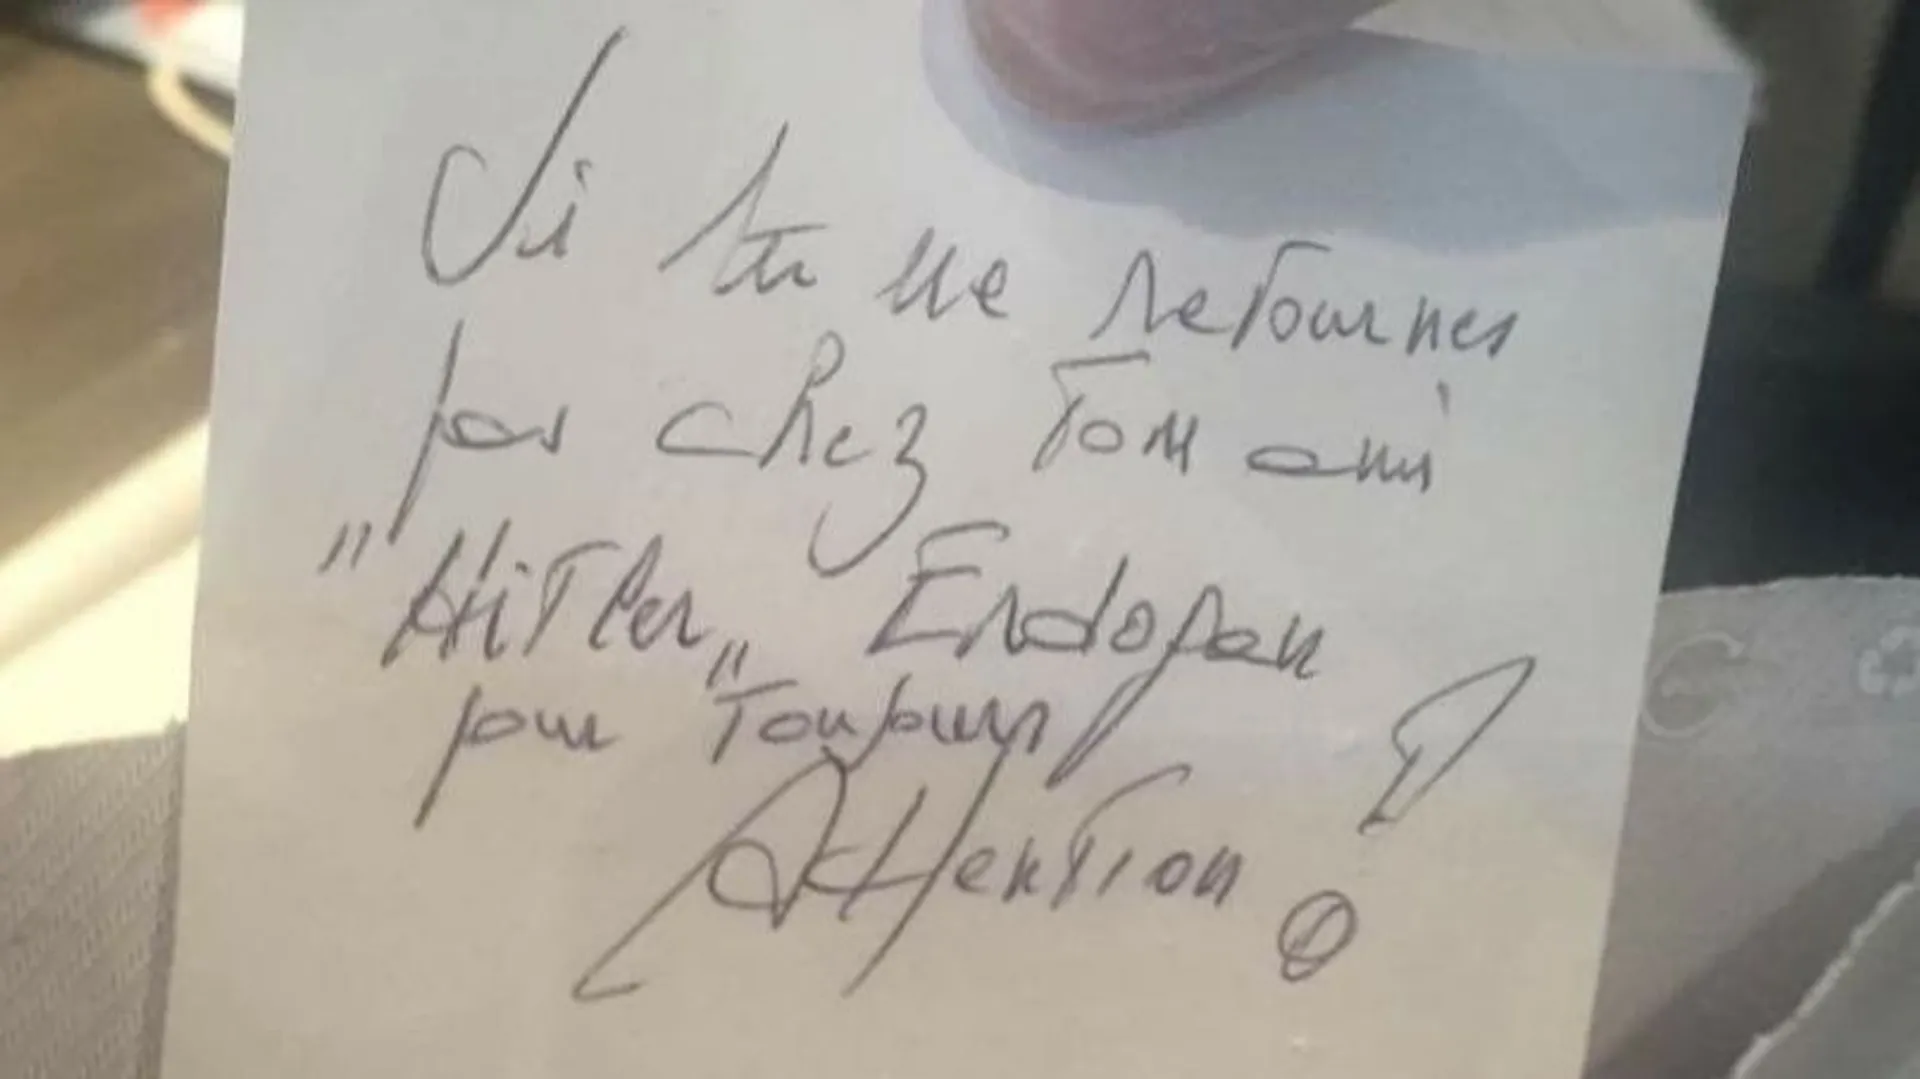 Si tu ne retournes
pas chez Ton ami
"Hitler" Erdopan
pour Toujours
Attention !